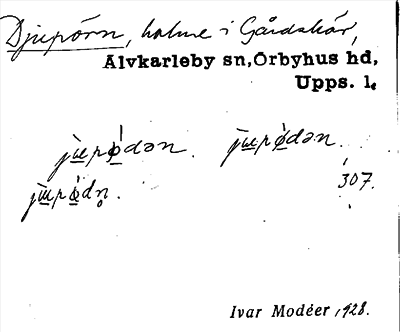 Djupörn, holme i Gårdskär,
Älvkarleby sn, Örbyhus hd,
Upps. l.
jùpö̀dən. jùpö̀dən.
307.
jùpö̀dn̥.
Ivar Modéer, 1928.